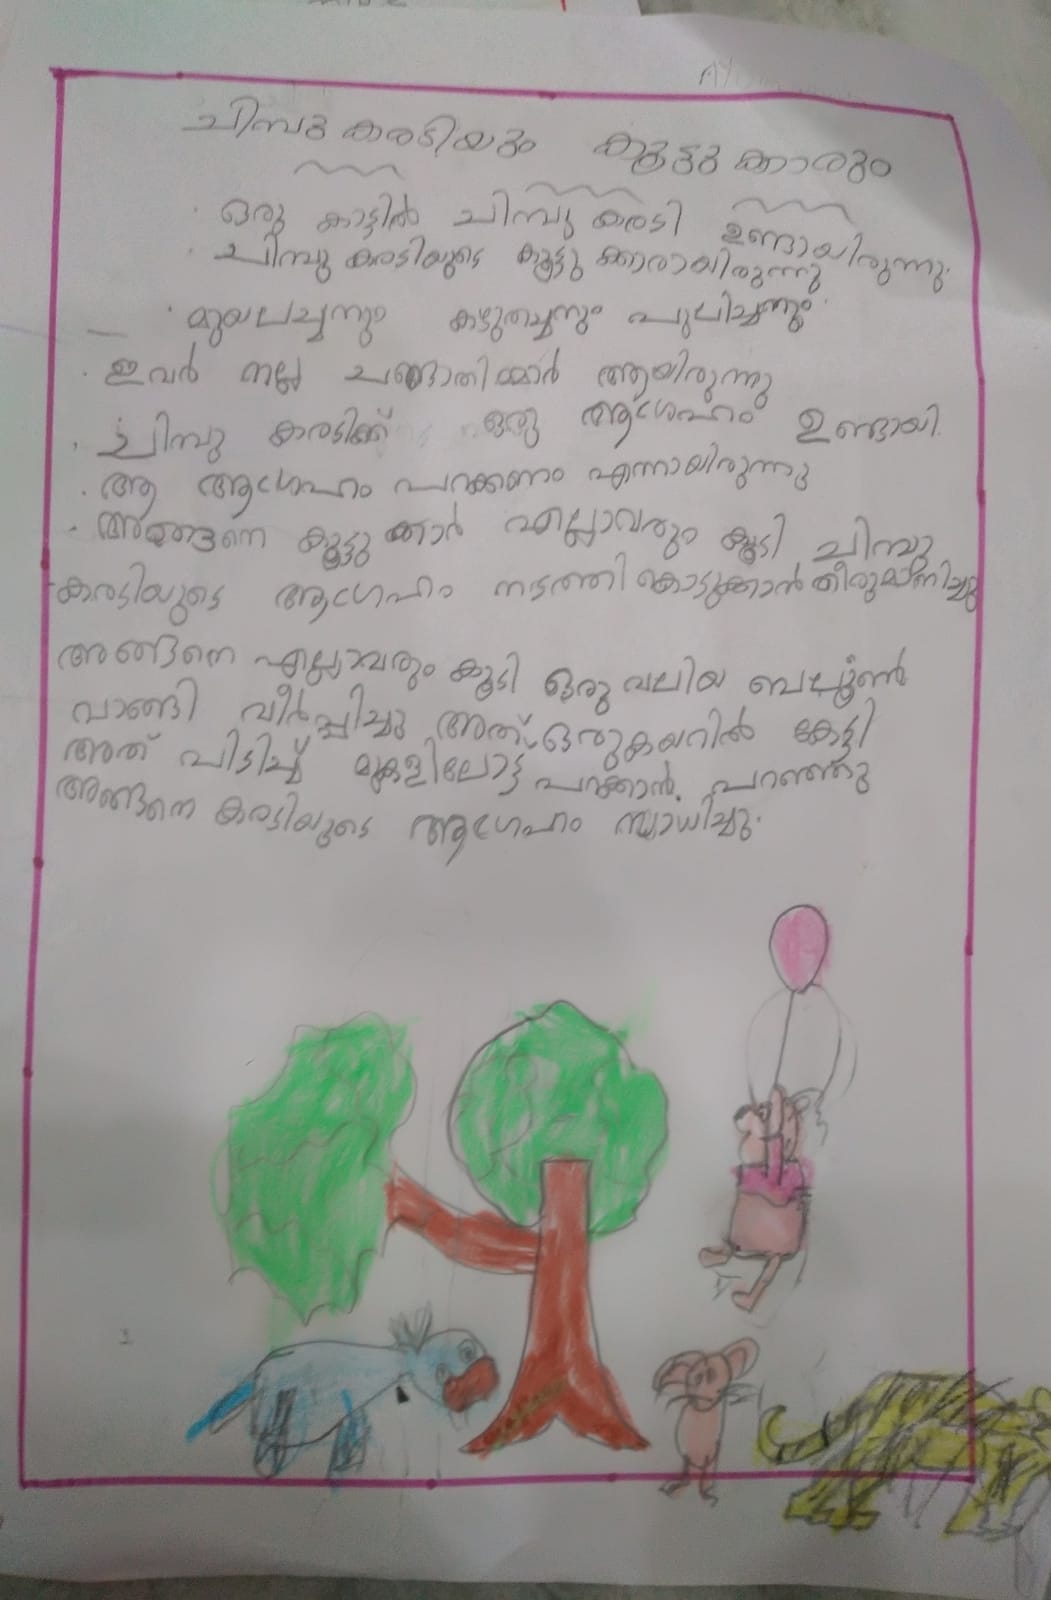 ചിമ്പു കരടിയും കൂട്ടുക്കാരും
ഒരു കാട്ടിൽ ചിമ്പു കരടി ഉണ്ടായിരുന്നു.
ചിമ്പു കരടിയുടെ കൂട്ടുക്കാരായിരുന്നു
മുയലച്ചനും കഴുതച്ചനും പുലിച്ചനും
ഇവർ നല്ല ചങ്ങാതിമ്മാർ ആയിരുന്നു
ചിമ്പു കരടിക്ക് ഒരു ആഗ്രേഹം ഉണ്ടായി.
ആ ആഗ്രേഹം പറക്കണം എന്നായിരുന്നു
അങ്ങനെ കൂട്ടുക്കാർ എല്ലാവരും കൂടി ചിമ്പു
കരടിയുടെ ആഗ്രേഹം നടത്തികൊടുക്കാൻ തീരുമാനിച്ചു
അങ്ങനെ എല്ലാവരും കൂടി ഒരു വലിയ ബലൂൺ
വാങ്ങി വീർപ്പിച്ചു അത് ഒരു കയറിൽ കേട്ടി
അത് പിടിച്ച് മുകളിലോട്ട് പറക്കാൻ. പറഞ്ഞു
അങ്ങനെ കരടിയുടെ ആഗ്രേഹം സ്വാധിച്ചു.